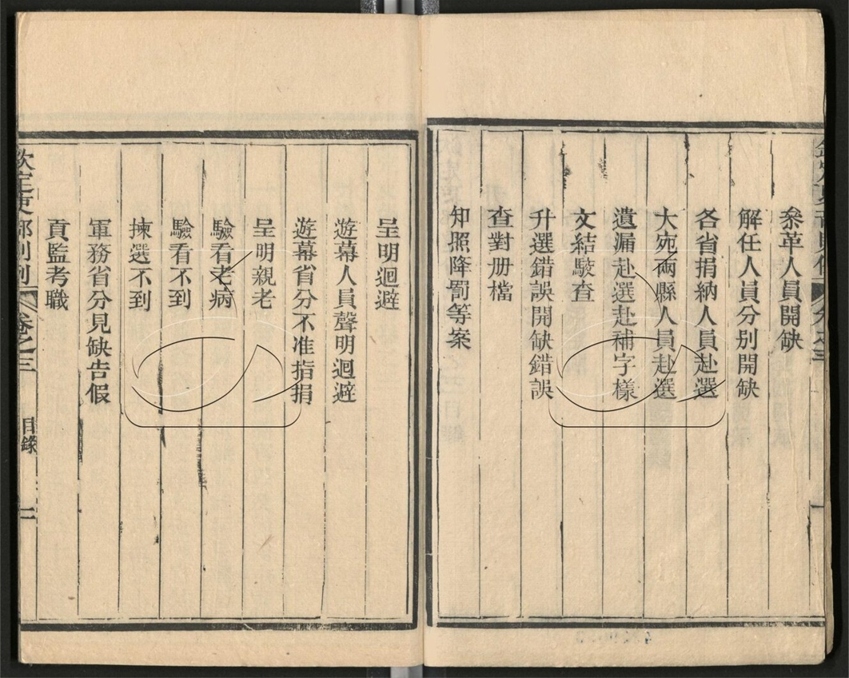 叅革人員開缺
解任人員分別開缺
各省捐納人員赴選
大宛兩縣人員赴選
遺漏赴選赴補字樣
文結駮查
升選錯誤開缺錯誤
查對册檔
知照降罰等案
呈明迴避
遊幕人員聲明迴避
遊幕省分不准指捐
呈明親老
驗看老病
驗看不到
揀選不到
軍務省分見缺告假
貢監考職
欽定吏部則例
卷之三
目錄
二